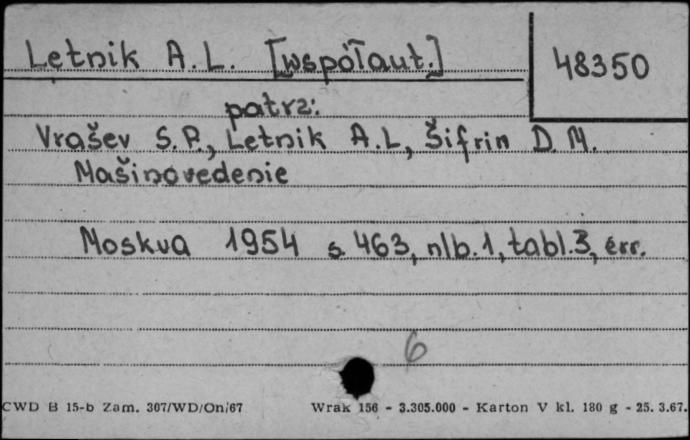 Letnik A.L. [współaut.]
48350
patrz:
Vrašev S.P., Letnik A.L, Šifrin D.M.
Mašinovedenie
Moskva 1954 s. 463, nlb. 1, tabl. 3, err.
6
CWD B 15-b Zam. 307/WD/On/67 Wrak 156 - 3.305.000 - Karton V kl. 180 g - 25. 3.67.